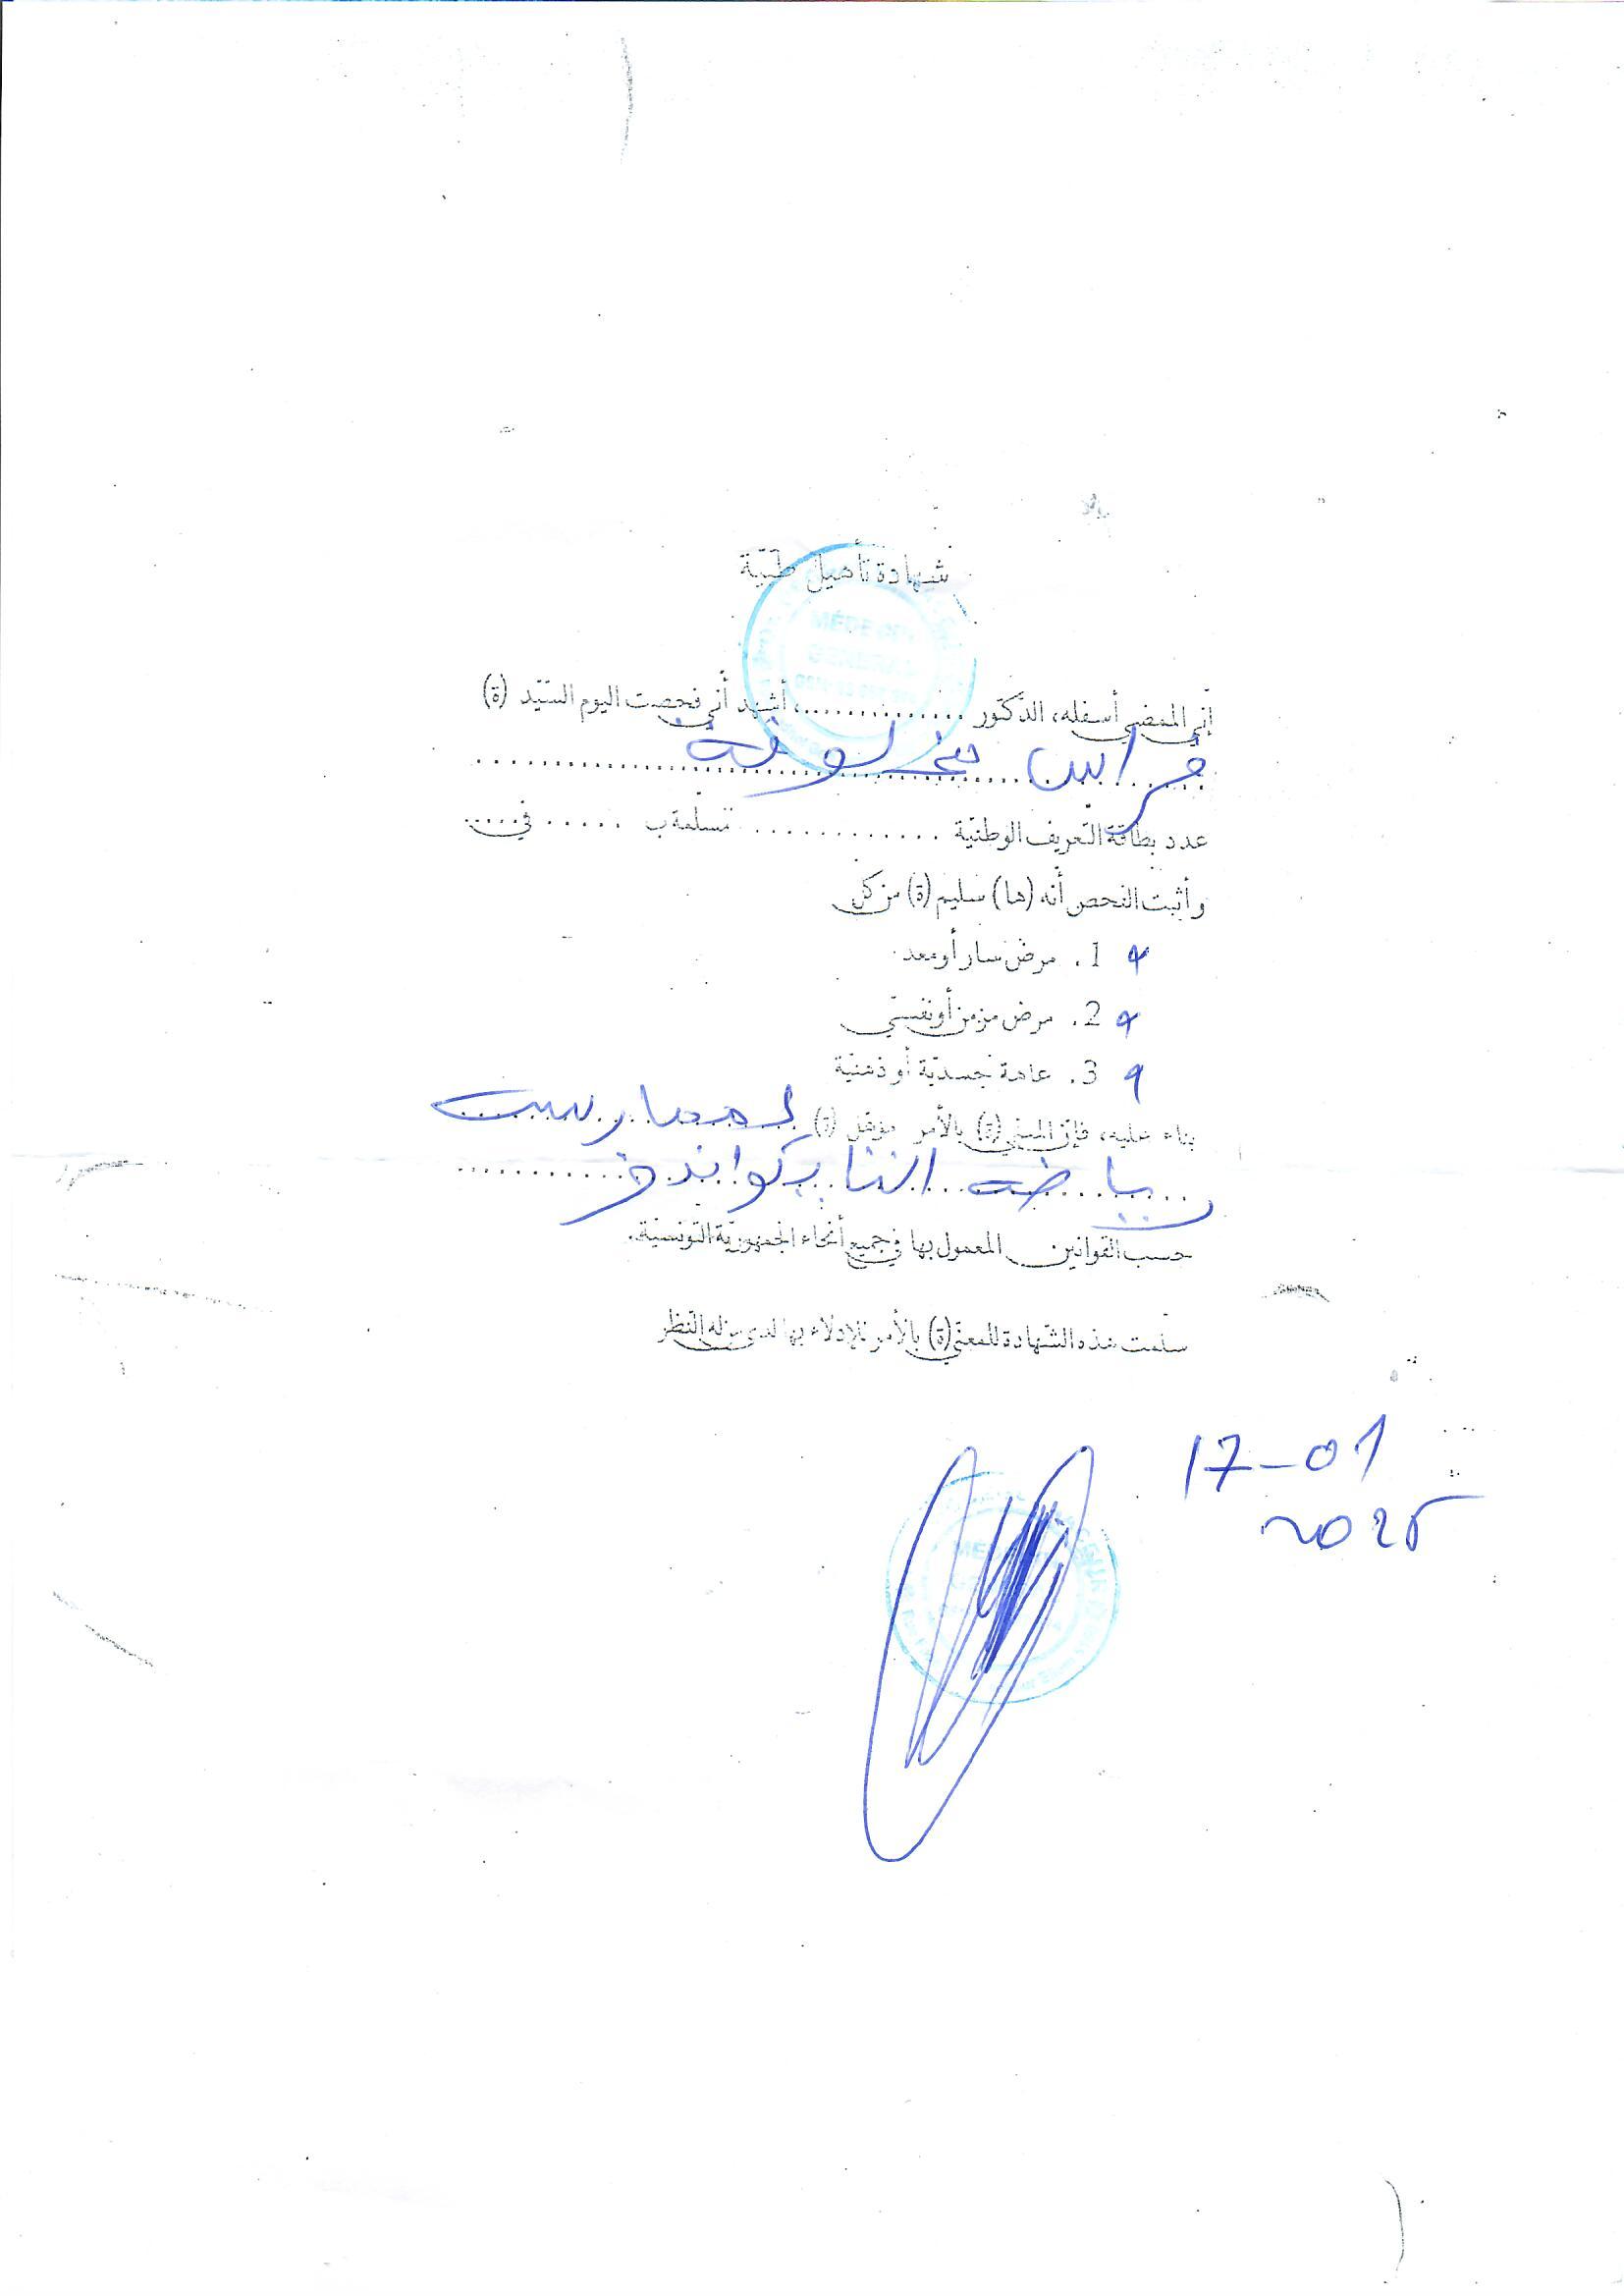 شهادة تأهيل طبّيّة
MÉDECIN
إنّي الممضي أسفله، الدّكتور ..............، أشهد أنّي فحصت اليوم السّيّد (ة)
عدد بطاقة التّعريف الوطنيّة ............. تسلمة ب ...... في .....
وأثبت الفحص أنه (ها) سليم (ة) من كلّ
1. مرض سار أو معد
2. مرض مزمن أو نفسيّ
3. عاهة جسديّة أو ذهنيّة
بناء عليه، فإنّ المعني (ة) بالأمر مؤهل (ة) لممارست
رياضة التايكواندو
حسب القوانين المعمول بها في جميع أنحاء الجمهوريّة التّونسيّة.
سلمت هذه الشّهادة للمعني (ة) بالأمر للإدلاء بها لدى من له النّظر
17-01
2025